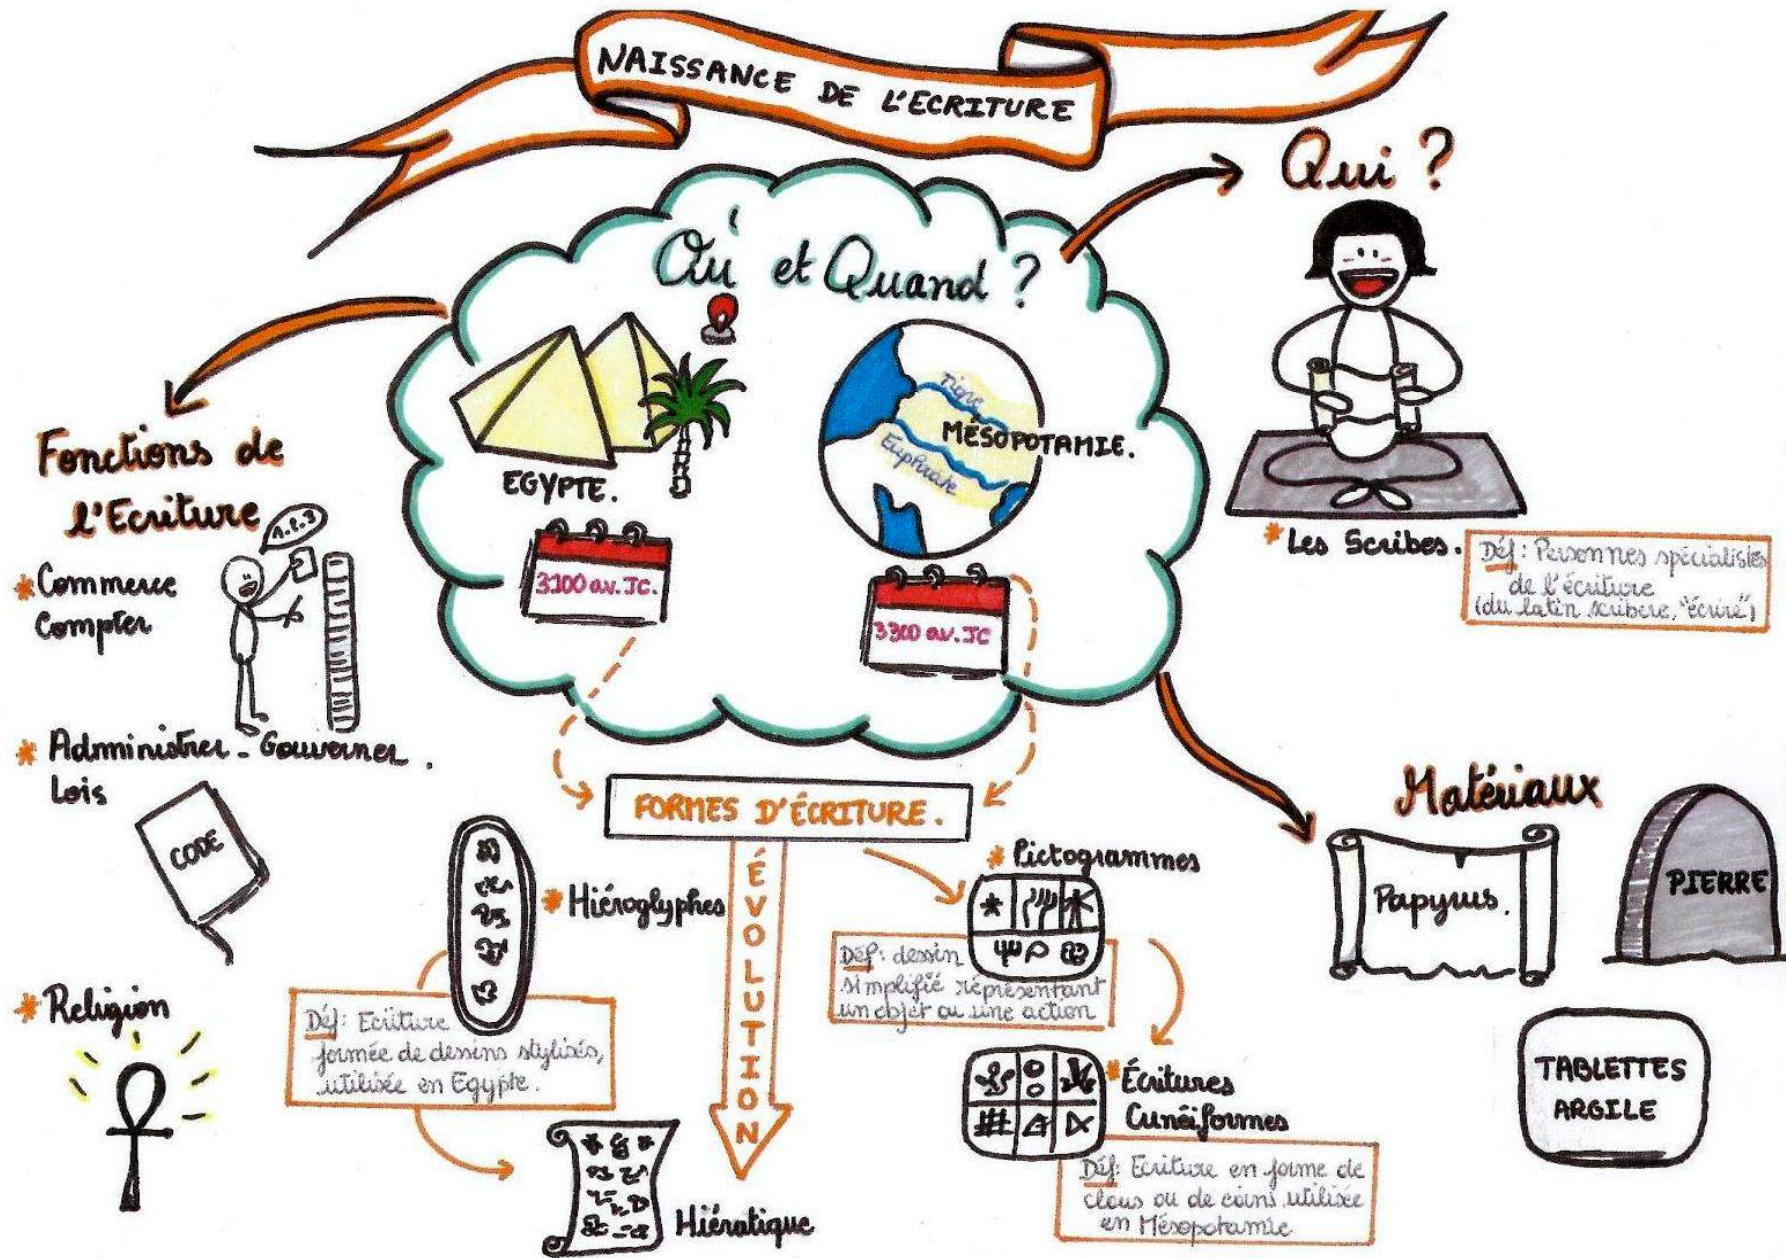 NAISSANCE DE L'ECRITURE
Où et Quand ?
EGYPTE.
3100 av. JC.
Tigre
MÉSOPOTAMIE.
Euphrate
3300 av. JC
Qui ?
* Les Scribes.
Déf: Personnes spécialistes
de l'écriture
(du latin scribere, "écrire")
Fonctions de
l'Ecriture
1.2.3
* Commerce
Compter
* Administrer - Gouverner.
Lois
CODE
* Religion
FORMES D'ÉCRITURE.
ÉVOLUTION
* Hiéroglyphes
Déf: Ecriture
formée de dessins stylisés,
utilisée en Egypte.
Hiératique
* Pictogrammes
Déf: dessin
simplifié représentant
un objet ou une action
* Écritures
Cunéiformes
Déf: Ecriture en forme de
clous ou de coins utilisée
en Mésopotamie
Matériaux
Papyrus.
PIERRE
TABLETTES
ARGILE